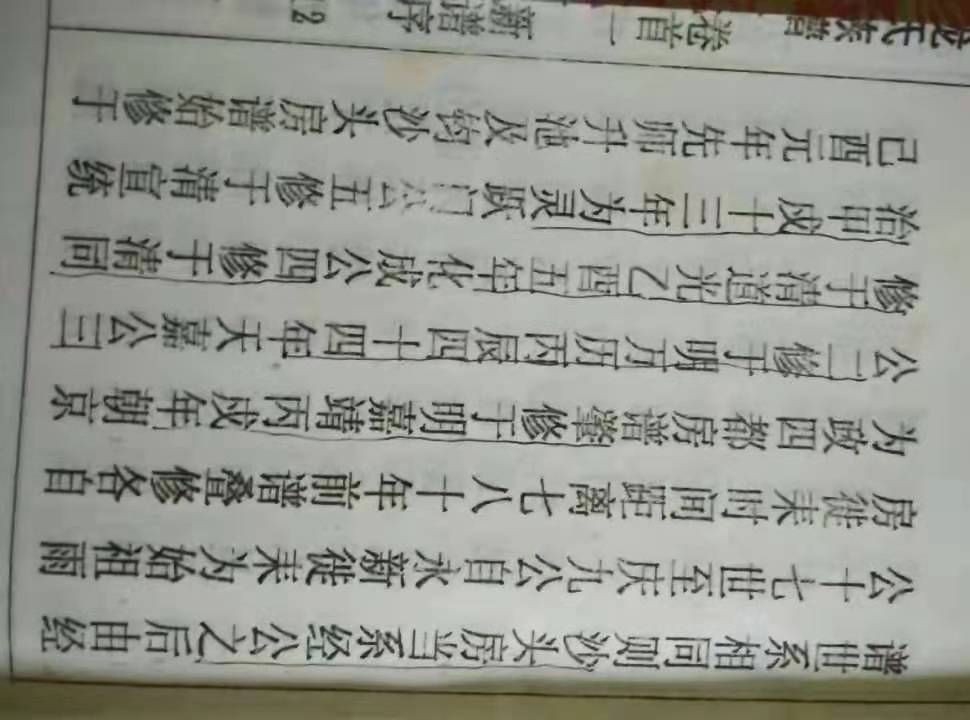 谱世系相同则沙头房当系经公之后由经
公十七世至庆九公自永新徙耒为始祖两
房徙耒时间距离七八十年前谱叠修各自
为政四都房谱肇修于明嘉靖丙戌年朝京
公二修于明万历丙辰四十四年天嘉公三
修于清道光乙酉五年化成公四修于清同
治甲戌十三年为灵跃门公五修于清宣统
己酉元年先师升池及钧沙头房谱始修于
氏族谱 卷首一 新谱序 12